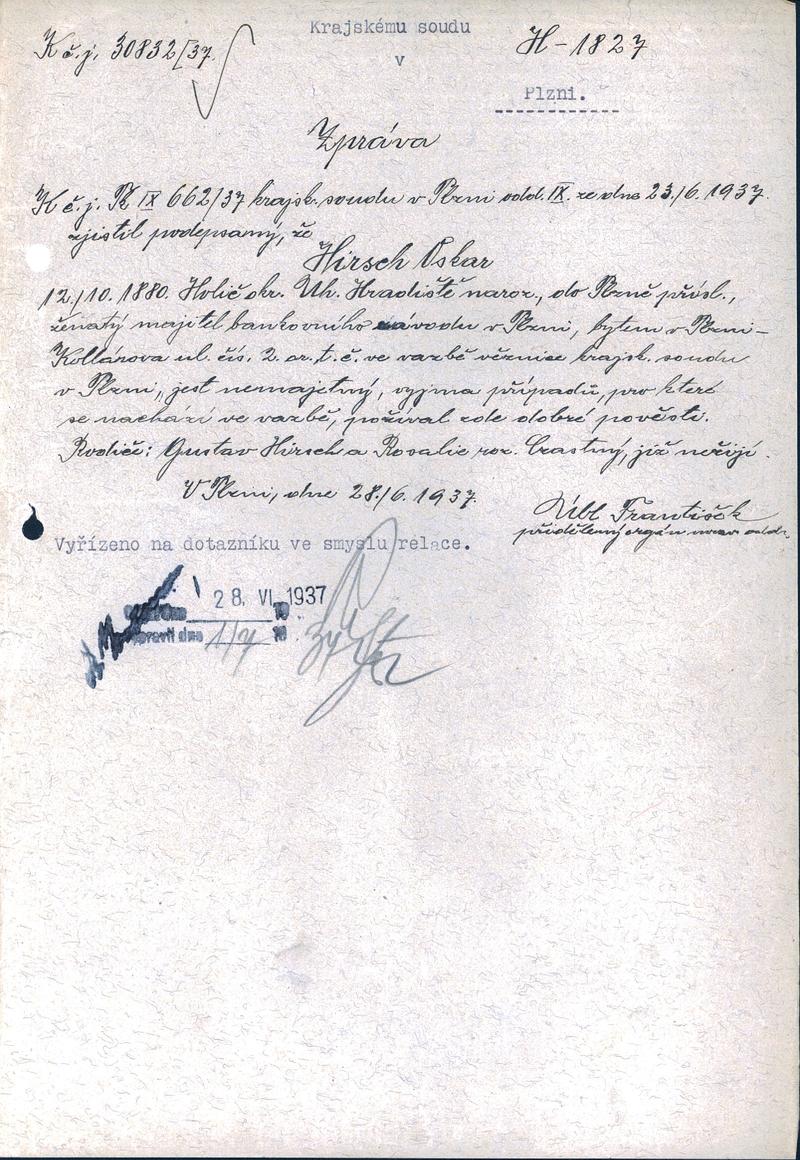 Krajskému soudu
K č.j. 30832/37. H-1827
v
Plzni.
Zpráva
K č.j. Tk IX 662/37 krajsk. soudu v Plzni odd. IX. ze dne 23./6. 1937.
zjistil podepsaný, že
Hirsch Oskar
12./10. 1880. Holič okr. Uh. Hradiště naroz., do Plzně přísl.,
ženatý majitel bankovního závodu v Plzni, bytem v Plzni-
Kollárova ul. čís. 2. t.č. ve vazbě věznice krajsk. soudu
v Plzni, jest nemajetný, vyjma případů, pro které
se nachází ve vazbě, požíval zde dobré pověsti.
Rodiče: Gustav Hirsch a Rosalie roz. Crastný, již nežijí.
V Plzni, dne 28./6. 1937.
Übl František
přidělený orgán
Vyřízeno na dotazníku ve smyslu relace.
28. VI. 1937
19
1/7 19